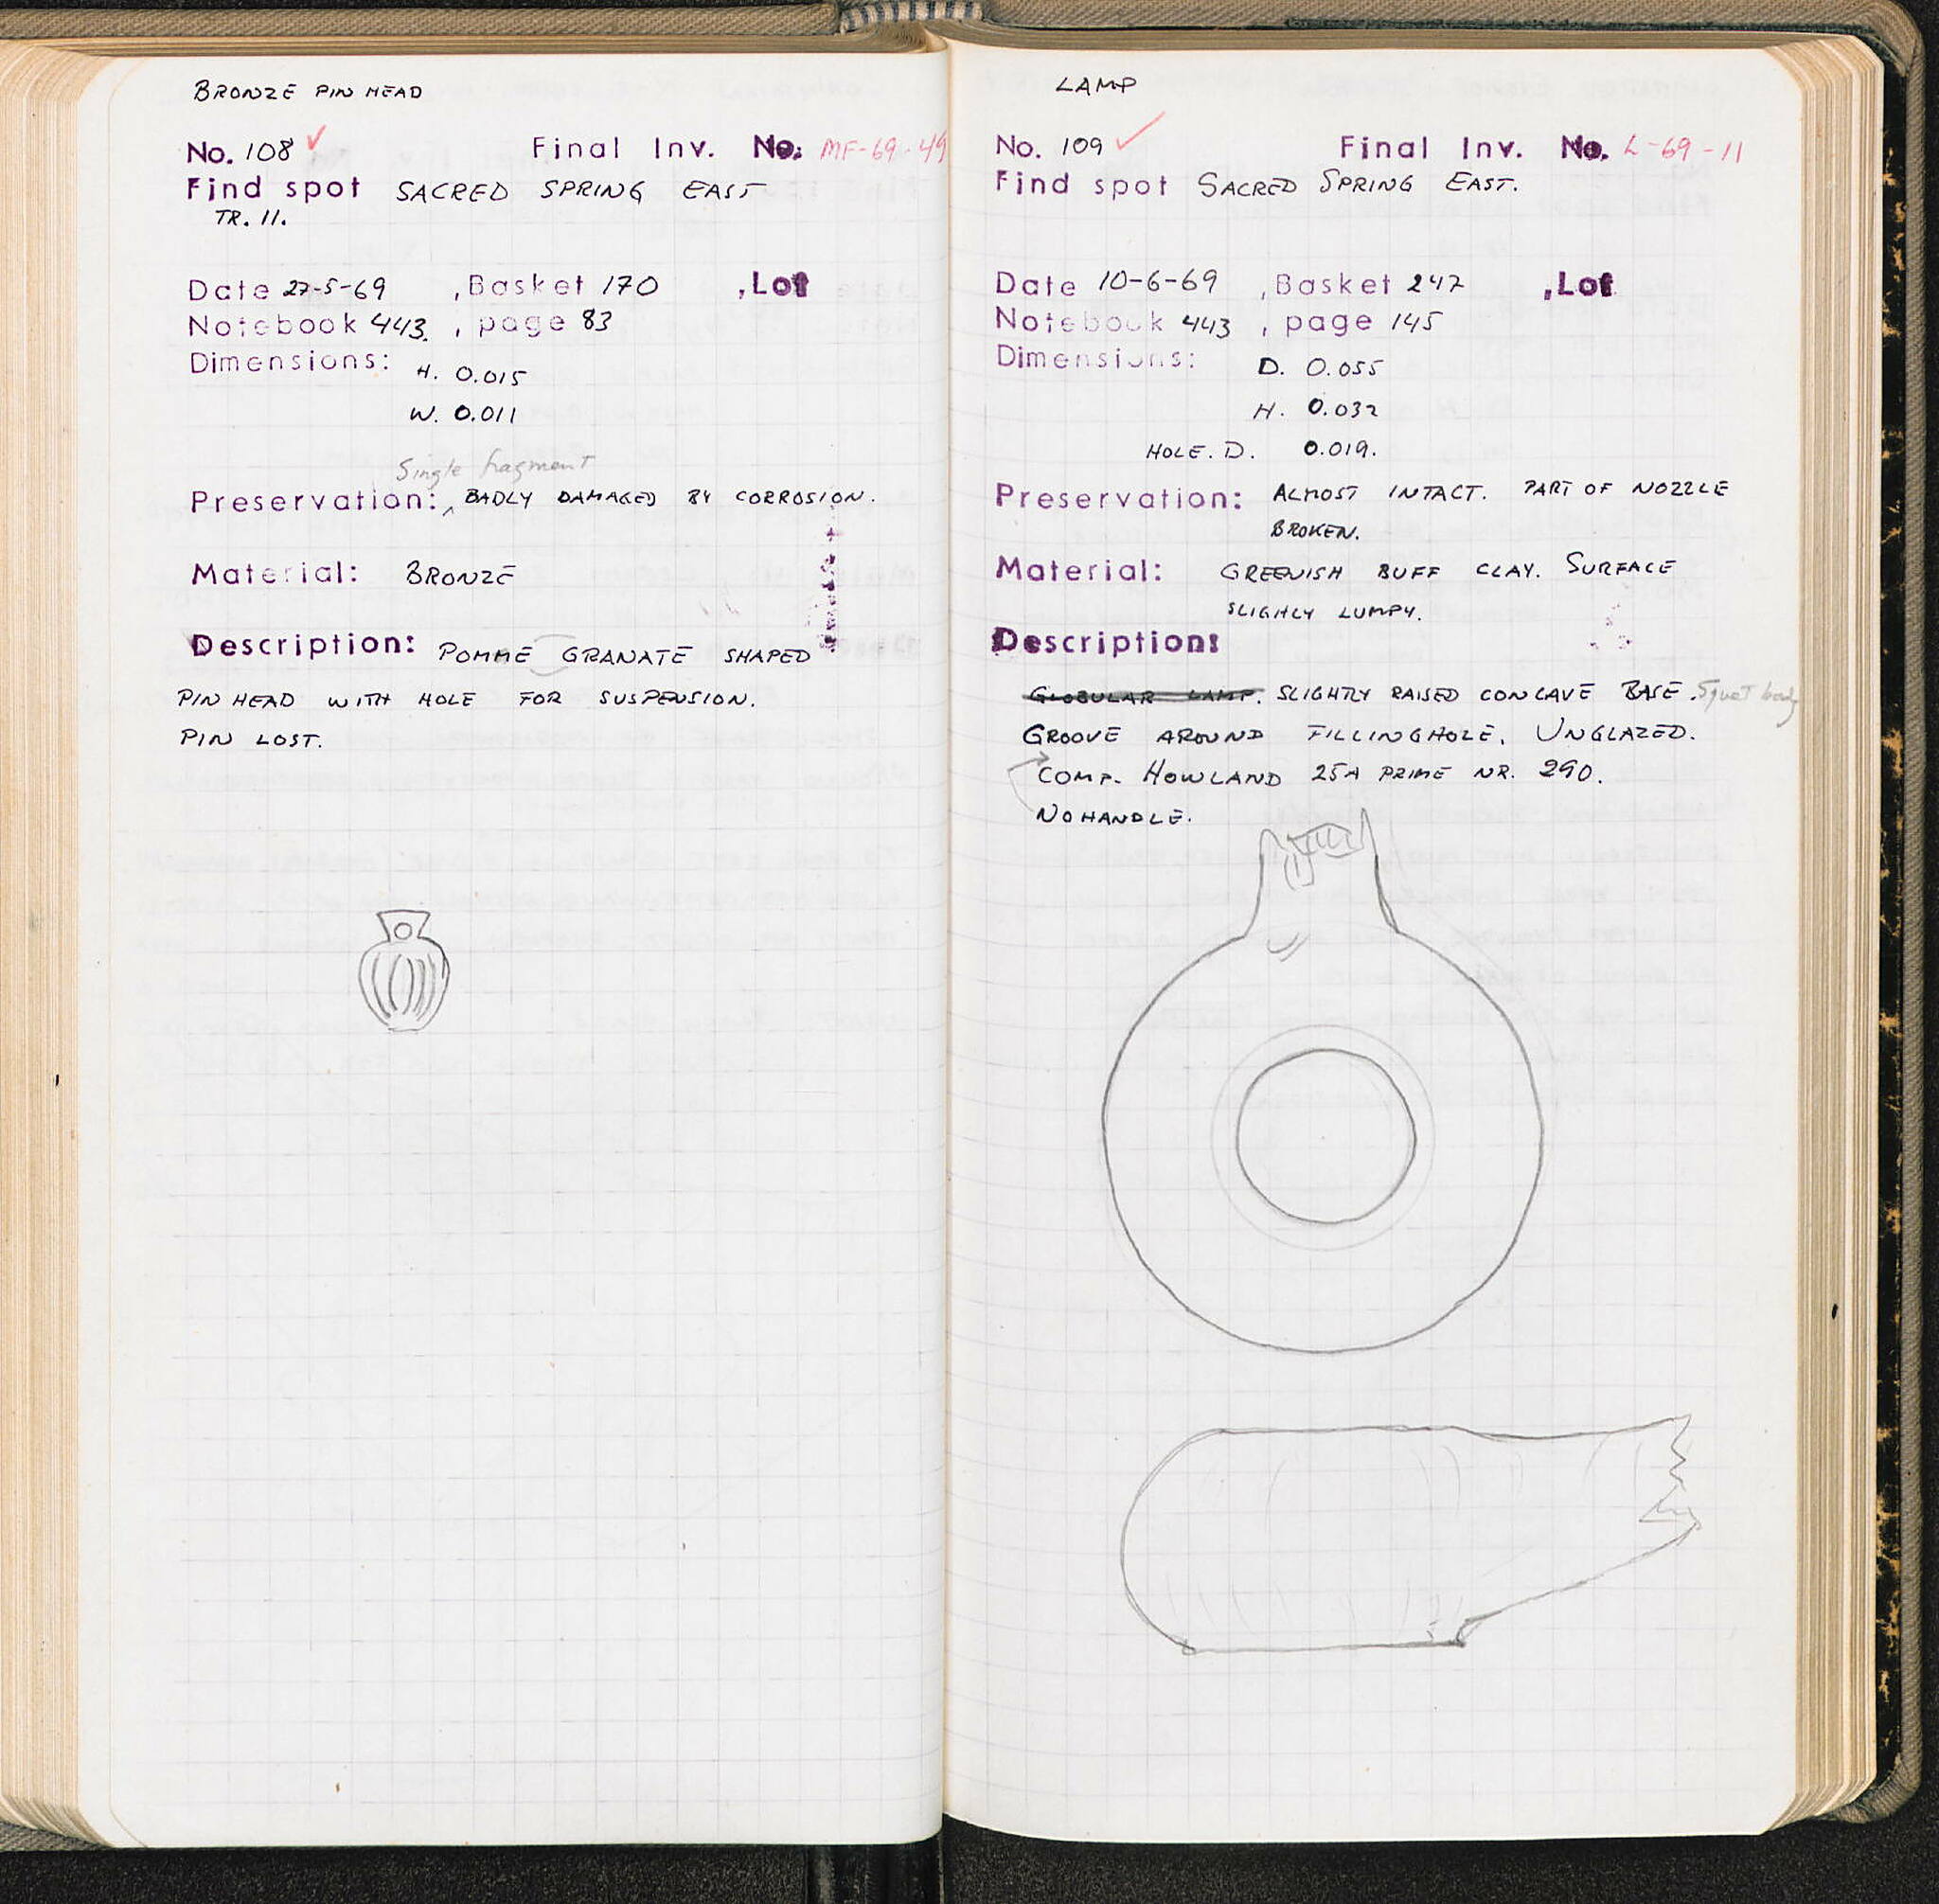 BRONZE PIN HEAD
No. 108 ✓ Final Inv. No. MF-69-49
Find spot SACRED SPRING EAST
TR. 11.
Date 27-5-69 , Basket 170 , Lot
Notebook 443. , page 83
Dimensions: H. 0.015
W. 0.011
Single fragment
Preservation: ^ BADLY DAMAGED BY CORROSION.
Material: BRONZE
Description: POMME GRANATE SHAPED
PIN HEAD WITH HOLE FOR SUSPENSION.
PIN LOST.
LAMP
No. 109 ✓ Final Inv. No. L-69-11
Find spot SACRED SPRING EAST.
Date 10-6-69 , Basket 247 , Lot
Notebook 443 , page 145
Dimensions: D. 0.055
H. 0.032
HOLE. D. 0.019.
Preservation: ALMOST INTACT. PART OF NOZZLE
BROKEN.
Material: GREENISH BUFF CLAY. SURFACE
SLIGHLY LUMPY.
Description:
GLOBULAR LAMP. SLIGHTLY RAISED CONCAVE BASE. Squat body
GROOVE AROUND FILLINGHOLE. UNGLAZED.
COMP. HOWLAND 25A PRIME NR. 290.
NO HANDLE.